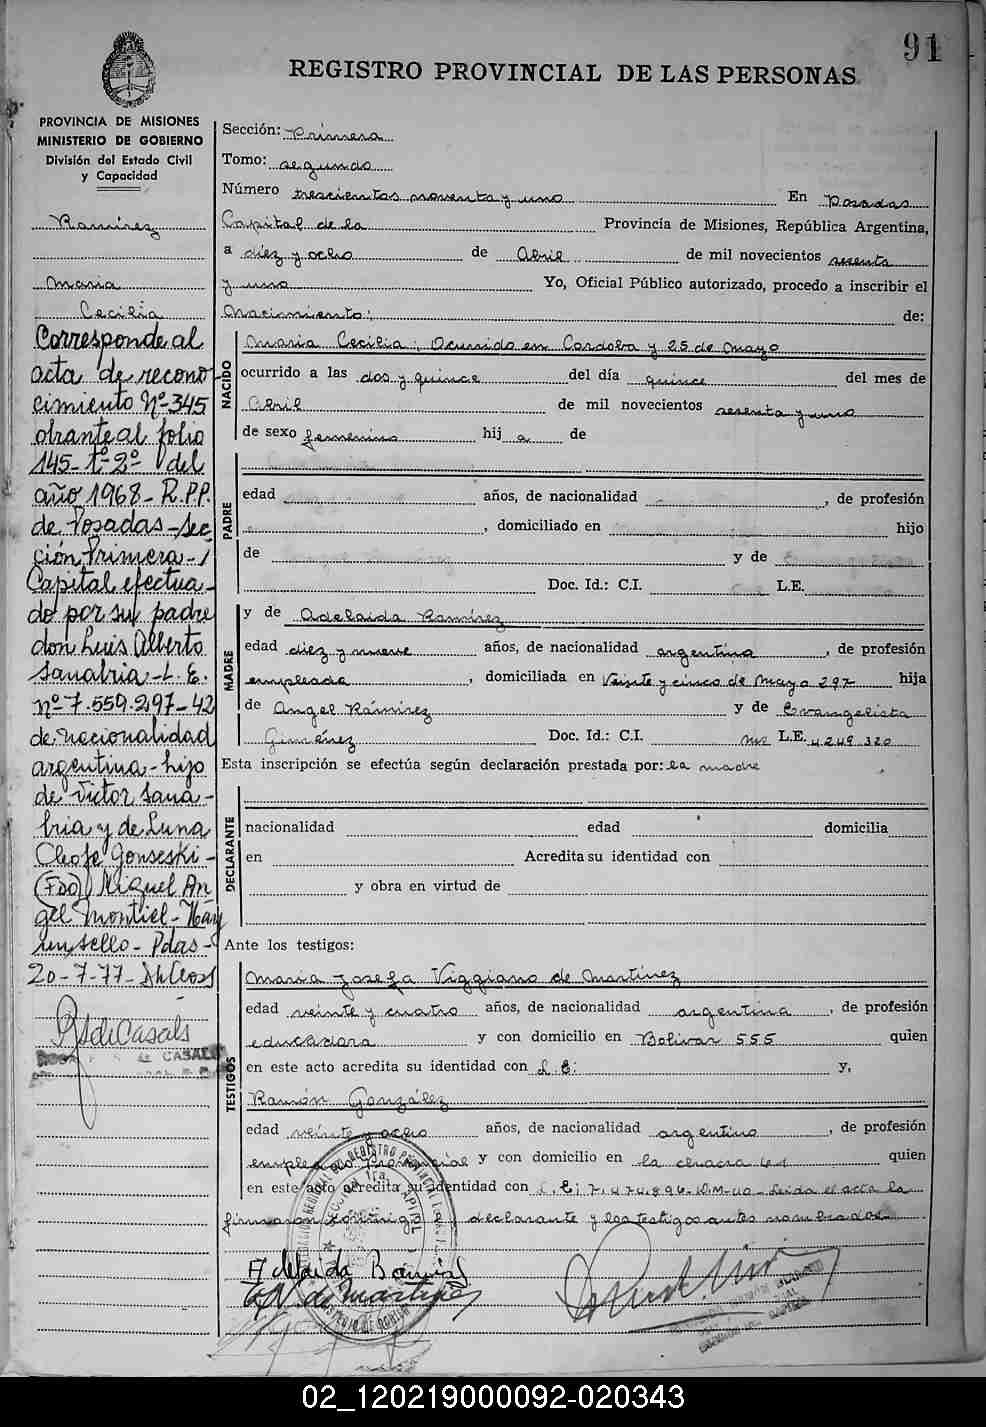 91
REGISTRO PROVINCIAL DE LAS PERSONAS
PROVINCIA DE MISIONES
MINISTERIO DE GOBIERNO
División del Estado Civil
y Capacidad
Ramírez
Maria
Cecilia
Corresponde al
acta de recono-
cimiento Nº 345
obrante al folio
145- tº 2º del
año 1968- R.P.P.
de Posadas- Sec
ción Primera-
Capital efectua-
do por su padre
don Luis Alberto
Sanabria- L.E.
nº 7.559.297-42
de nacionalidad
argentina- hijo
de Victor Sana-
bria y de Luna
Cleofe Gonseski-
(Fdo) Miguel An
gel Montiel- Hay
un sello- Pdas-
20-7-77-
de CASALS
Sección: Primera
Tomo: segundo
Número trescientos noventa y uno En Posadas
Capital de la Provincia de Misiones, República Argentina,
a diez y ocho de Abril de mil novecientos sesenta
y uno Yo, Oficial Público autorizado, procedo a inscribir el
Nacimiento: de:
NACIDO
Maria Cecilia; Ocurrido en Cordoba y 25 de Mayo
ocurrido a las dos y quince del día quince del mes de
Abril de mil novecientos sesenta y uno
de sexo femenino hij a de
PADRE
edad años, de nacionalidad , de profesión
, domiciliado en hijo
de y de
Doc. Id.: C.I. L.E.
MADRE
y de Adelaida Ramírez
edad diez y nueve años, de nacionalidad argentina , de profesión
empleada , domiciliada en Veinte y cinco de Mayo 297 hija
de Angel Ramírez y de Evangelista
Giménez Doc. Id.: C.I. L.E. 4249320
Esta inscripción se efectúa según declaración prestada por: la madre
DECLARANTE
nacionalidad edad domicilia
en Acredita su identidad con
y obra en virtud de
Ante los testigos:
TESTIGOS
Maria Josefa Viggiano de Martínez
edad veinte y cuatro años, de nacionalidad argentina , de profesión
educadora y con domicilio en Bolivar 555 quien
en este acto acredita su identidad con L.E: y,
Ramón González
edad veinte y ocho años, de nacionalidad argentino , de profesión
empleado Provincial y con domicilio en la chacra 61 quien
en este acto acredita su identidad con L.E; 7.474.896-D.M-40- Leida el acta la
firmaron conmigo declarante y los testigos antes nombrados
Adelaida Ramirez
de Martinez
02_120219000092-020343